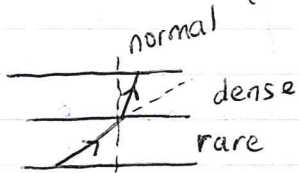 normal
dense
rare